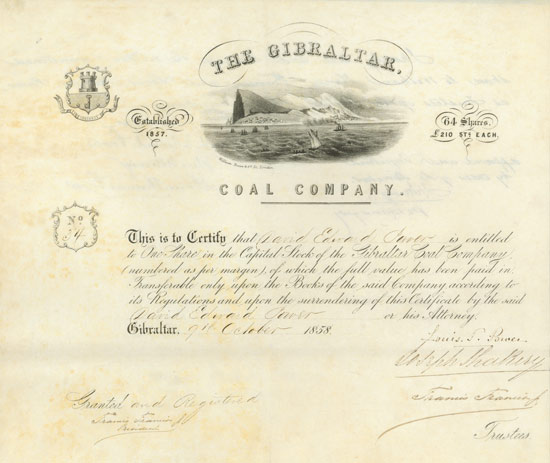 THE GIBRALTAR,
Established
1857.
64 Shares.
£210 STG EACH.
COAL COMPANY.
No
This is to Certify that David Edward is entitled
to One Share in the Capital Stock of the Gibraltar Coal Company,
(numbered as per margin), of which the full value has been paid in.
Transferable only upon the Books of the said Company according to
its Regulations and upon the surrendering of this Certificate by the said
David Edward or his Attorney.
Gibraltar, 9th October 1858.
Louis T. Power
Granted and Registered
Francis Francia
Francis Francia
Trustees.